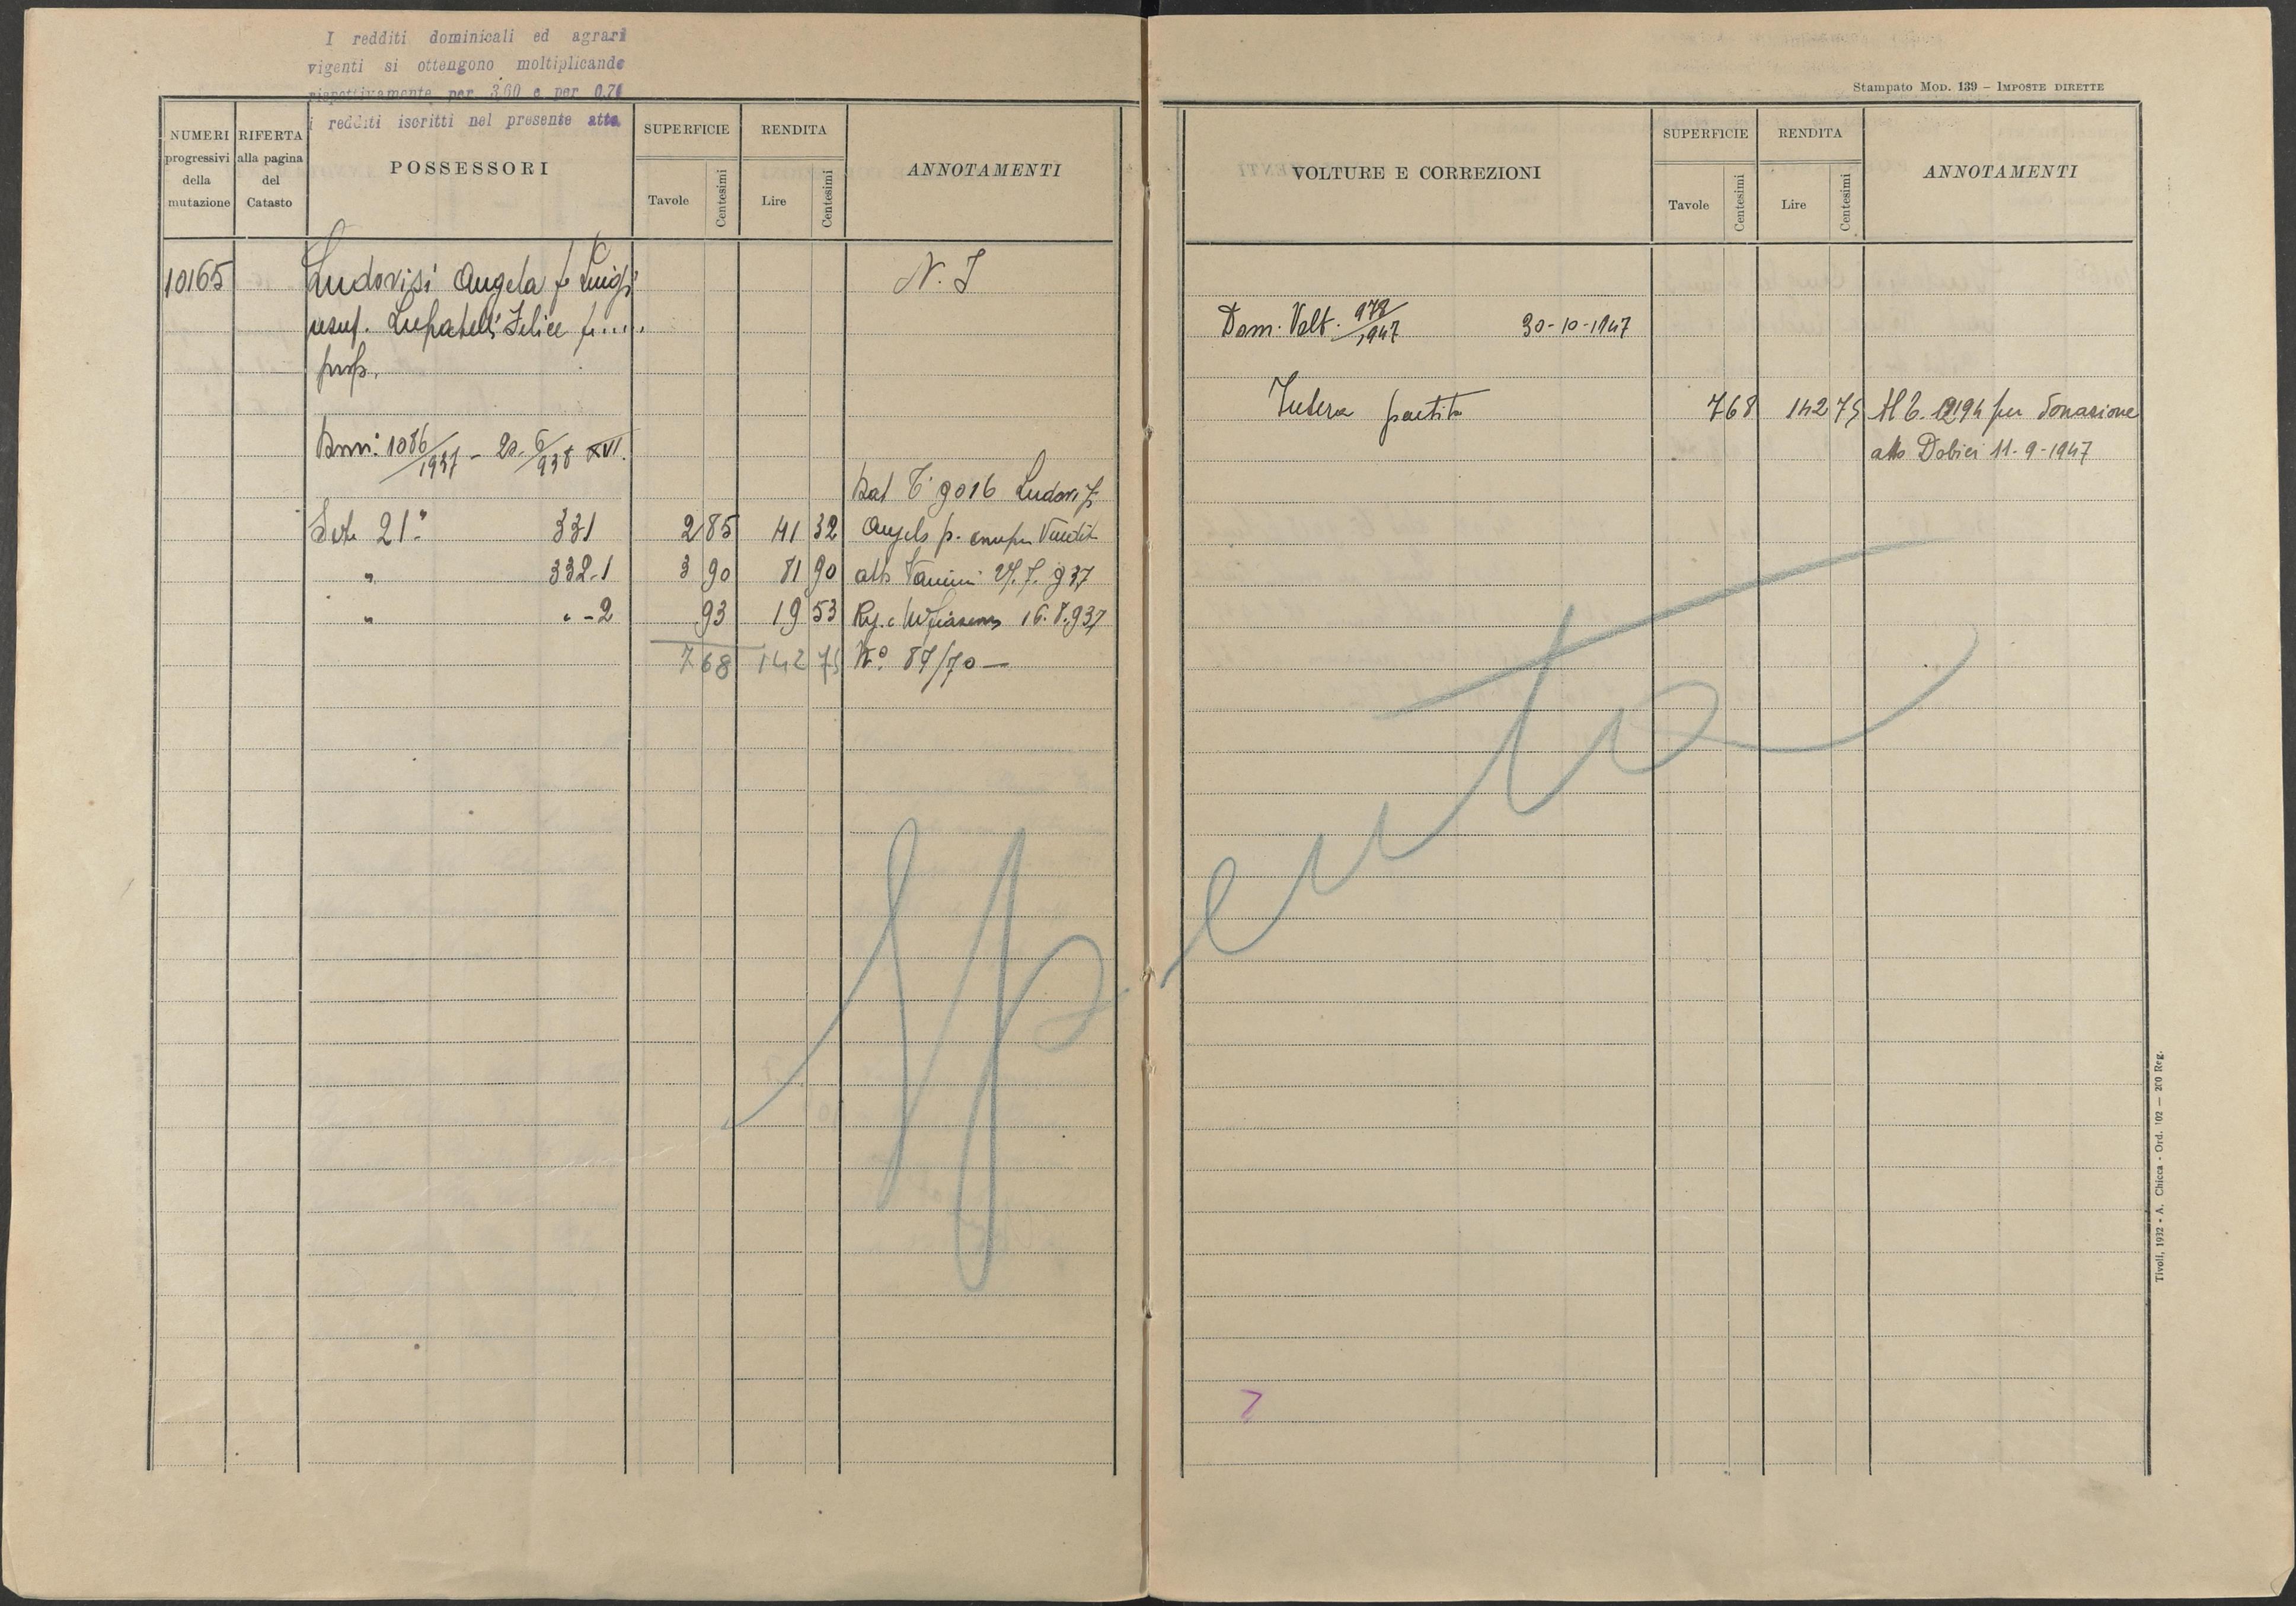 I redditi dominicali ed agrari
vigenti si ottengono moltiplicando
rispettivamente per 3,00 e per 0,70
i redditi iscritti nel presente atto
NUMERI progressivi della mutazione
RIFERTA alla pagina del Catasto
POSSESSORI
SUPERFICIE
Tavole
Centesimi
RENDITA
Lire
Centesimi
ANNOTAMENTI
10165 Ludovisi Angela f Luigi N. I
usuf. Lupatelli Felice f.....
prop.
1086/1937 - 20. 6/938 XVI.
Dal 9016 Ludovisi
21° 331 2 85 41 32 Angela p.
" 332-1 3 90 81 90 atto 937
" " -2 93 19 53 16.8.937
7 68 142 75 N° 87/70 —
Stampato MOD. 139 – IMPOSTE DIRETTE
VOLTURE E CORREZIONI
SUPERFICIE
Tavole
Centesimi
RENDITA
Lire
Centesimi
ANNOTAMENTI
Dom. Volt. 978/1947 30-10-1947
Intera partita 7 68 142 75 Al 12194 per donazione
atto Dobici 11-9-1947
Spento
7
Tivoli, 1932 - A. Chicca - Ord. 102 — 200 Reg.